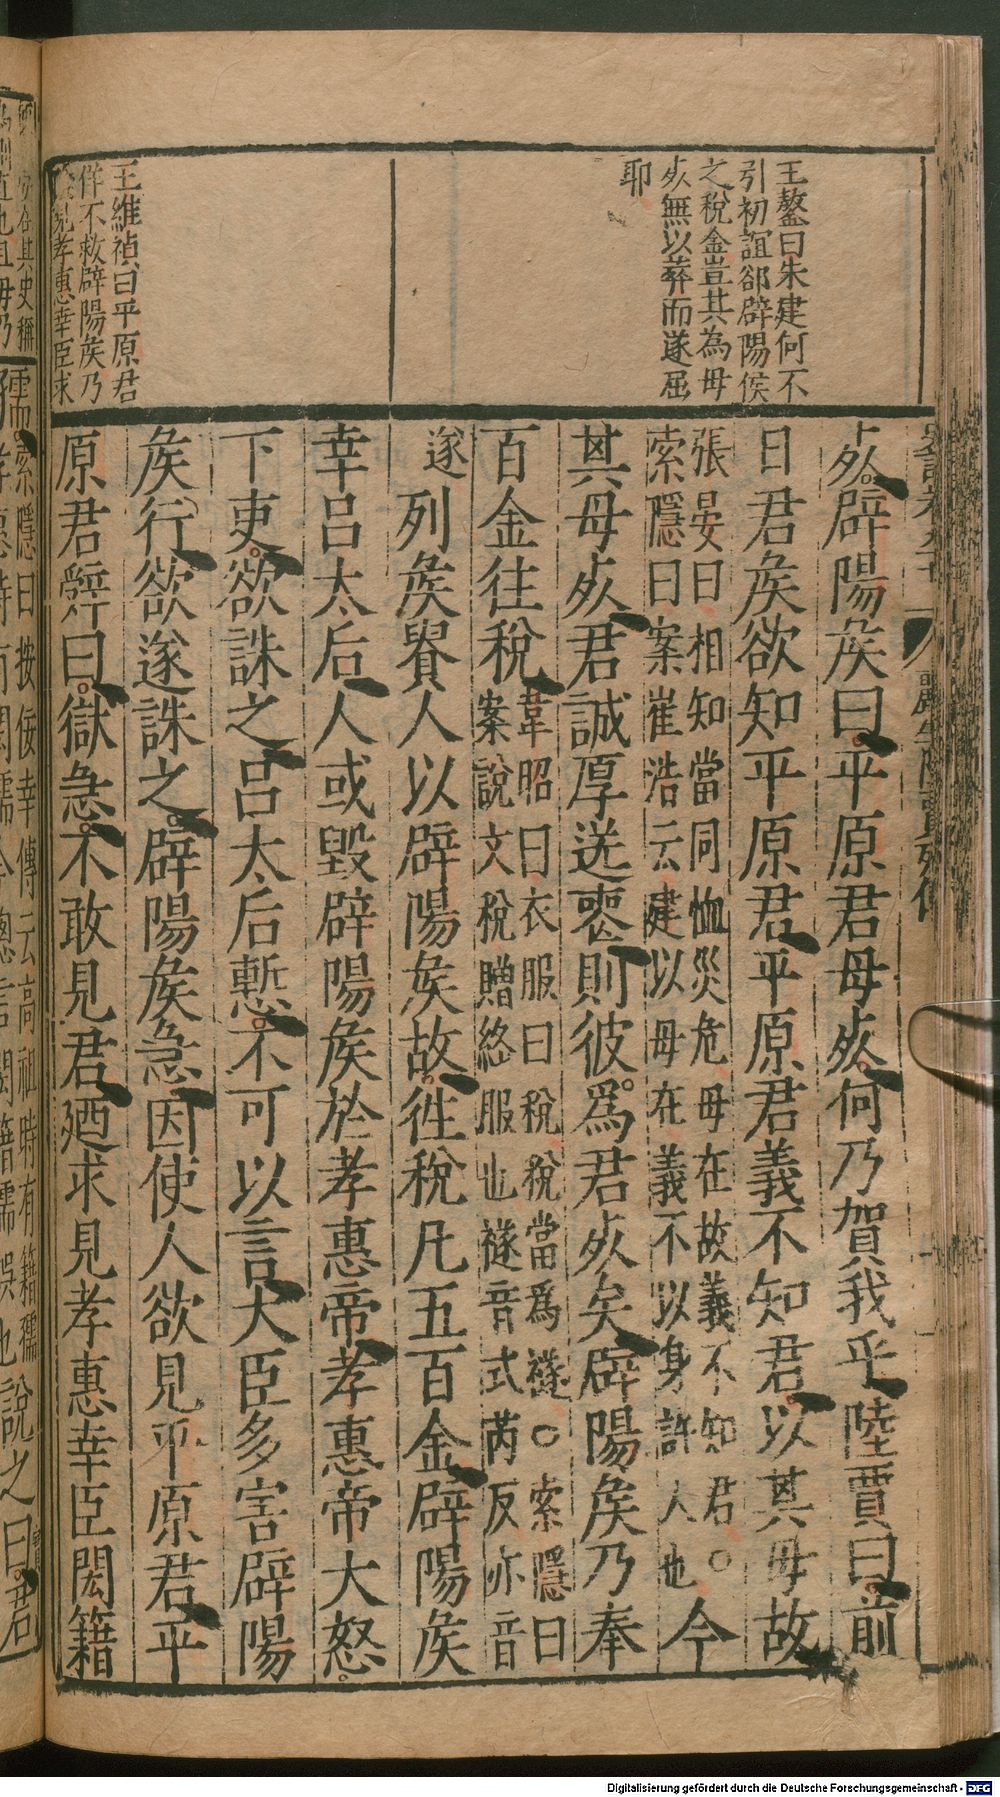 王鏊曰朱建何不
引初誼郤辟陽侯
之稅金豈其為母
死無以葬而遂屈
耶
王維禎曰平原君
佯不救辟陽矦乃
見孝惠幸臣求
死辟陽矦曰平原君母死何乃賀我乎陸賈曰前
日君矦欲知平原君平原君義不知君以其母故
張晏曰相知當同恤災危母在故義不知君○
索隱曰案崔浩云建以母在義不以身許人也
今
其母死君誠厚送喪則彼爲君死矣辟陽矦乃奉
百金往稅
韋昭曰衣服曰稅稅當爲襚○索隱曰
案說文稅贈終服也襚音式芮反亦音
遂
列矦貴人以辟陽矦故徃稅凡五百金辟陽矦
幸呂太后人或毀辟陽矦於孝惠帝孝惠帝大怒
下吏欲誅之呂太后慙不可以言大臣多害辟陽
矦行欲遂誅之辟陽矦急因使人欲見平原君平
原君辤曰獄急不敢見君廼求見孝惠幸臣閎籍
孺
索隱曰按佞幸傳云高祖時有籍孺
說之曰君
Digitalisierung gefördert durch die Deutsche Forschungsgemeinschaft - DFG